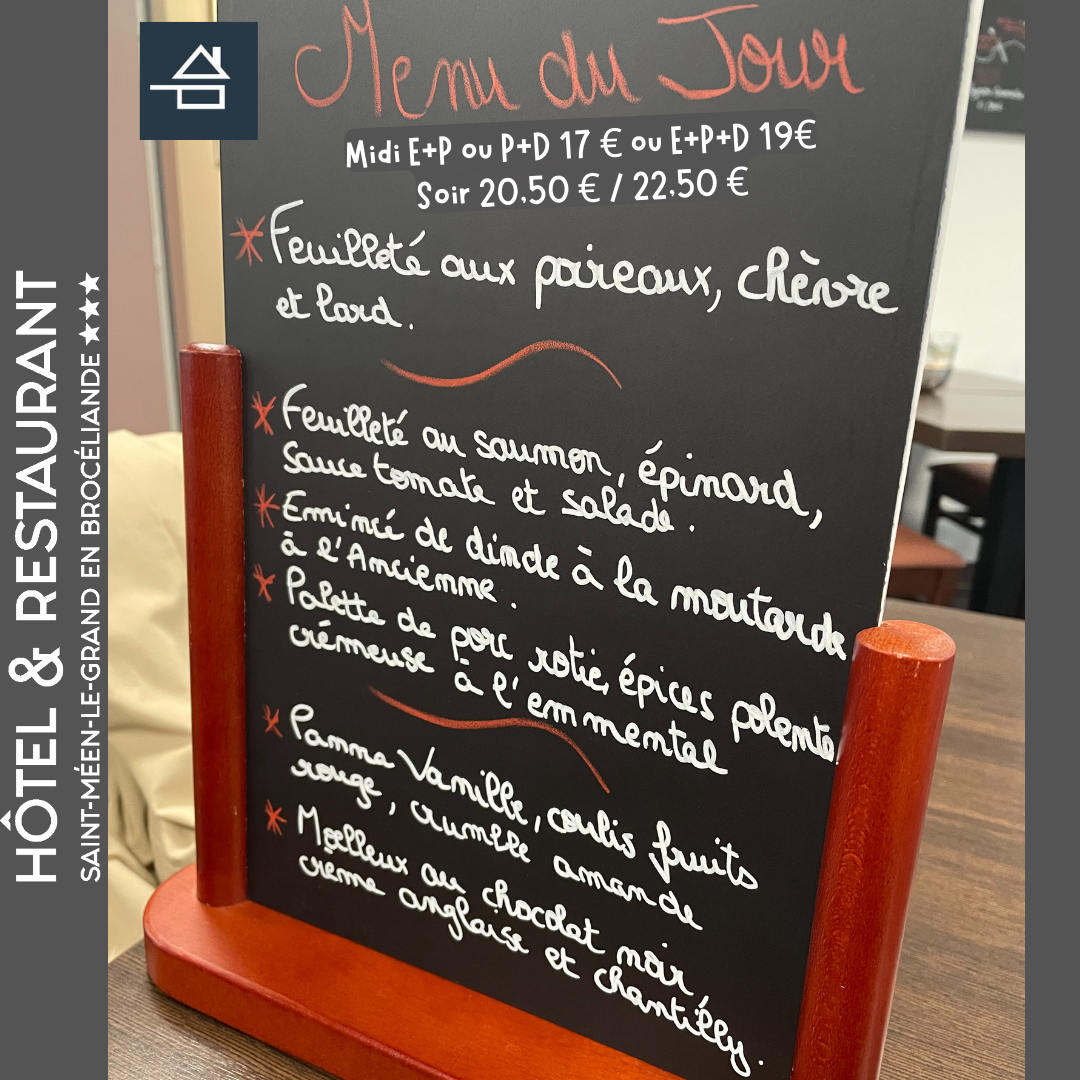 Menu du Jour
Midi E+P ou P+D 17 € ou E+P+D 19€
Soir 20,50 € / 22,50 €
* Feuilleté aux poireaux, chèvre
et lard.
* Feuilleté au saumon, épinard,
Sauce tomate et salade.
* Emincé de dinde à la moutarde
à l'Ancienne.
* Palette de porc rotie, épices polenta
crémeuse à l'emmental
* Panna Vanille, coulis fruits
rouge, crumble amande
* Moelleux au chocolat noir,
crème anglaise et chantilly.
HÔTEL & RESTAURANT
SAINT-MÉEN-LE-GRAND EN BROCÉLIANDE ★★★